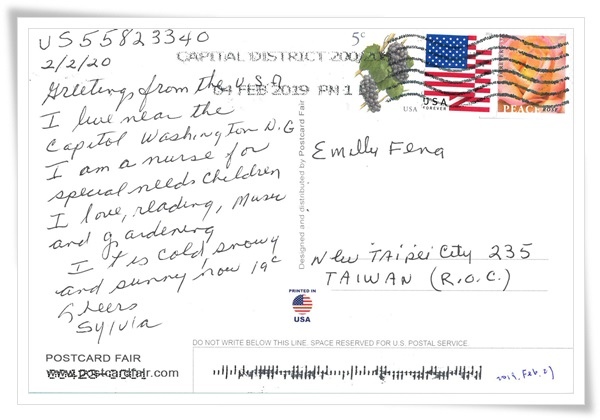 US55823340
2/2/20
Greetings from the U.S.A
I live near the
Capitol Washington D.C
I am a nurse for
special needs children
I love, reading, Music
and gardening
It is cold snowy
and sunny now 19c
Cheers
Sylvia
POSTCARD FAIR
www.postcardfair.com
Designed and distributed by Postcard Fair
CAPITAL DISTRICT 200
04 FEB 2019 PM 1
5c
USA
USA
FOREVER
PEACE
Emilly Feng
New Taipei City 235
TAIWAN (R.O.C.)
PRINTED IN
USA
DO NOT WRITE BELOW THIS LINE. SPACE RESERVED FOR U.S. POSTAL SERVICE.